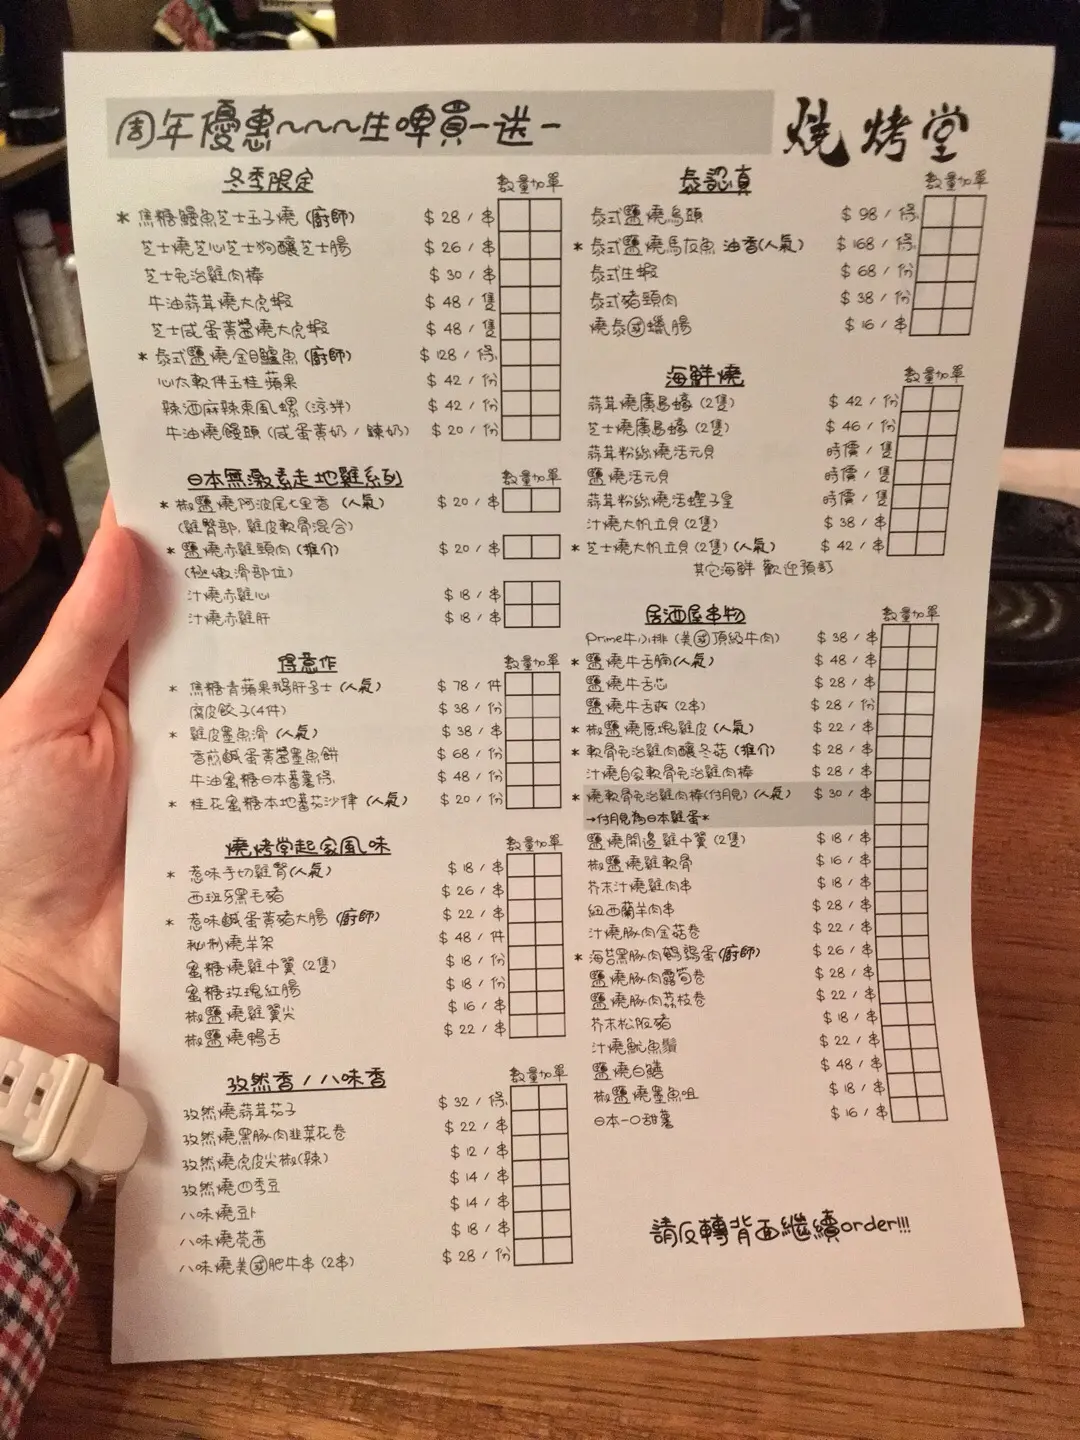 周年優惠~~~生啤買一送一
燒烤堂
冬季限定 數量加單
* 焦糖鰻魚芝士玉子燒 (廚師) $ 28 / 串
芝士燒芝心芝士狗釀芝士腸 $ 26 / 串
芝士免治雞肉棒 $ 30 / 串
牛油蒜茸燒大虎蝦 $ 48 / 隻
芝士咸蛋黃醬燒大虎蝦 $ 48 / 隻
* 泰式鹽燒金目鱸魚 (廚師) $ 128 / 條
心太軟伴玉桂蘋果 $ 42 / 份
辣酒麻辣東風螺 (涼拌) $ 42 / 份
牛油燒饅頭 (咸蛋黃奶 / 鍊奶) $ 20 / 份
日本無激素走地雞系列 數量加單
* 椒鹽燒阿波尾七里香 (人氣) $ 20 / 串
(雞臀部, 雞皮軟骨混合)
* 鹽燒赤雞頸肉 (推介) $ 20 / 串
(極嫩滑部位)
汁燒赤雞心 $ 18 / 串
汁燒赤雞肝 $ 18 / 串
得意作 數量加單
* 焦糖青蘋果鵝肝多士 (人氣) $ 78 / 件
腐皮餃子(4件) $ 38 / 份
* 雞皮墨魚滑 (人氣) $ 38 / 串
香煎鹹蛋黃醬墨魚餅 $ 68 / 份
牛油蜜糖日本蕃薯條 $ 48 / 份
* 桂花蜜糖本地蕃茄沙律 (人氣) $ 20 / 份
燒烤堂起家風味 數量加單
* 惹味手切雞腎(人氣) $ 18 / 串
西班牙黑毛豬 $ 26 / 串
* 惹味鹹蛋黃豬大腸 (廚師) $ 22 / 串
秘制燒羊架 $ 48 / 件
蜜糖燒雞中翼 (2隻) $ 18 / 份
蜜糖玫瑰紅腸 $ 18 / 份
椒鹽燒雞翼尖 $ 16 / 串
椒鹽燒鴨舌 $ 22 / 串
孜然香 / 八味香 數量加單
孜然燒蒜茸茄子 $ 32 / 條
孜然燒黑豚肉韭菜花卷 $ 22 / 串
孜然燒虎皮尖椒(辣) $ 12 / 串
孜然燒四季豆 $ 14 / 串
八味燒豆卜 $ 14 / 串
八味燒茺茜 $ 18 / 串
八味燒美國肥牛串 (2串) $ 28 / 份
泰認真 數量加單
泰式鹽燒烏頭 $ 98 / 條
* 泰式鹽燒馬友魚 油香(人氣) $ 168 / 條
泰式生蝦 $ 68 / 份
泰式豬頸肉 $ 38 / 份
燒泰國臘腸 $ 16 / 串
海鮮燒 數量加單
蒜茸燒廣島蠔 (2隻) $ 42 / 份
芝士燒廣島蠔 (2隻) $ 46 / 份
蒜茸粉絲燒活元貝 時價 / 隻
鹽燒活元貝 時價 / 隻
蒜茸粉絲燒活蟶子皇 時價 / 隻
汁燒大帆立貝 (2隻) $ 38 / 串
* 芝士燒大帆立貝 (2隻) (人氣) $ 42 / 串
其它海鮮 歡迎預訂
居酒屋串物 數量加單
Prime牛小排 (美國頂級牛肉) $ 38 / 串
* 鹽燒牛舌腩(人氣) $ 48 / 串
鹽燒牛舌芯 $ 28 / 串
鹽燒牛舌爽 (2串) $ 28 / 份
* 椒鹽燒原塊雞皮 (人氣) $ 22 / 串
* 軟骨免治雞肉釀冬菇 (推介) $ 28 / 串
汁燒自家軟骨免治雞肉棒 $ 28 / 串
* 燒軟骨免治雞肉棒(付月見) (人氣) $ 30 / 串
→付月見為日本雞蛋*
鹽燒開邊雞中翼 (2隻) $ 18 / 串
椒鹽燒雞軟骨 $ 16 / 串
芥末汁燒雞肉串 $ 18 / 串
紐西蘭羊肉串 $ 28 / 串
汁燒豚肉金菇卷 $ 22 / 串
* 海苔黑豚肉鵪鶉蛋(廚師) $ 26 / 串
鹽燒豚肉露筍卷 $ 28 / 串
鹽燒豚肉荔枝卷 $ 22 / 串
芥末松阪豬 $ 18 / 串
汁燒魷魚鬚 $ 22 / 串
鹽燒白鱔 $ 48 / 串
椒鹽燒墨魚咀 $ 18 / 串
日本一口甜薯 $ 16 / 串
請反轉背面繼續order!!!